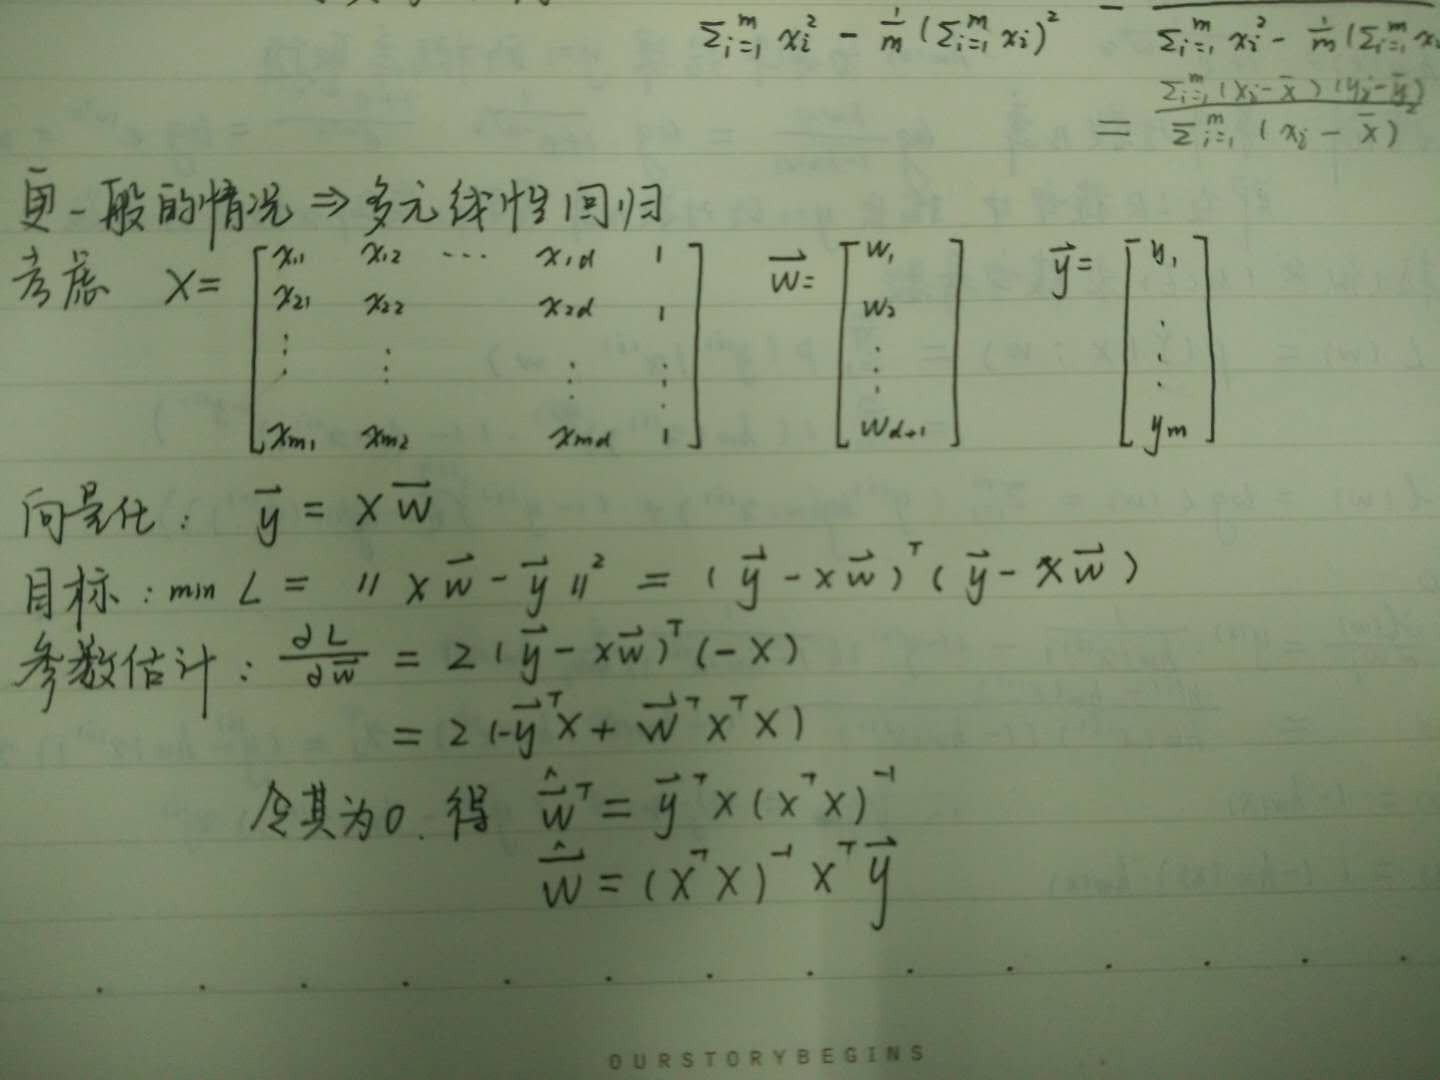 Σᵢ₌₁ᵐ xᵢ² − 1/m (Σᵢ₌₁ᵐ xᵢ)² − Σᵢ₌₁ᵐ xᵢ² − 1/m (Σᵢ₌₁ᵐ x
= Σᵢ₌₁ᵐ (xᵢ − x̄)(yᵢ − ȳ) / Σᵢ₌₁ᵐ (xᵢ − x̄)²
更一般的情况 ⇒ 多元线性回归
考虑 X = [x₁₁ x₁₂ ⋯ x₁d 1; x₂₁ x₂₂ x₂d 1; ⋮ ⋮ ⋮ ⋮; xm₁ xm₂ xmd 1] w⃗ = [w₁; w₂; ⋮; wd+1] y⃗ = [y₁; ⋮; ym]
向量化: y⃗ = Xw⃗
目标: min L = ‖Xw⃗ − y⃗‖² = (y⃗ − Xw⃗)ᵀ(y⃗ − Xw⃗)
参数估计: ∂L/∂w⃗ = 2(y⃗ − Xw⃗)ᵀ(−X)
= 2(−y⃗ᵀX + w⃗ᵀXᵀX)
令其为0. 得 ŵ⃗ᵀ = y⃗ᵀX(XᵀX)⁻¹
ŵ⃗ = (XᵀX)⁻¹Xᵀy⃗
OURSTORYBEGINS